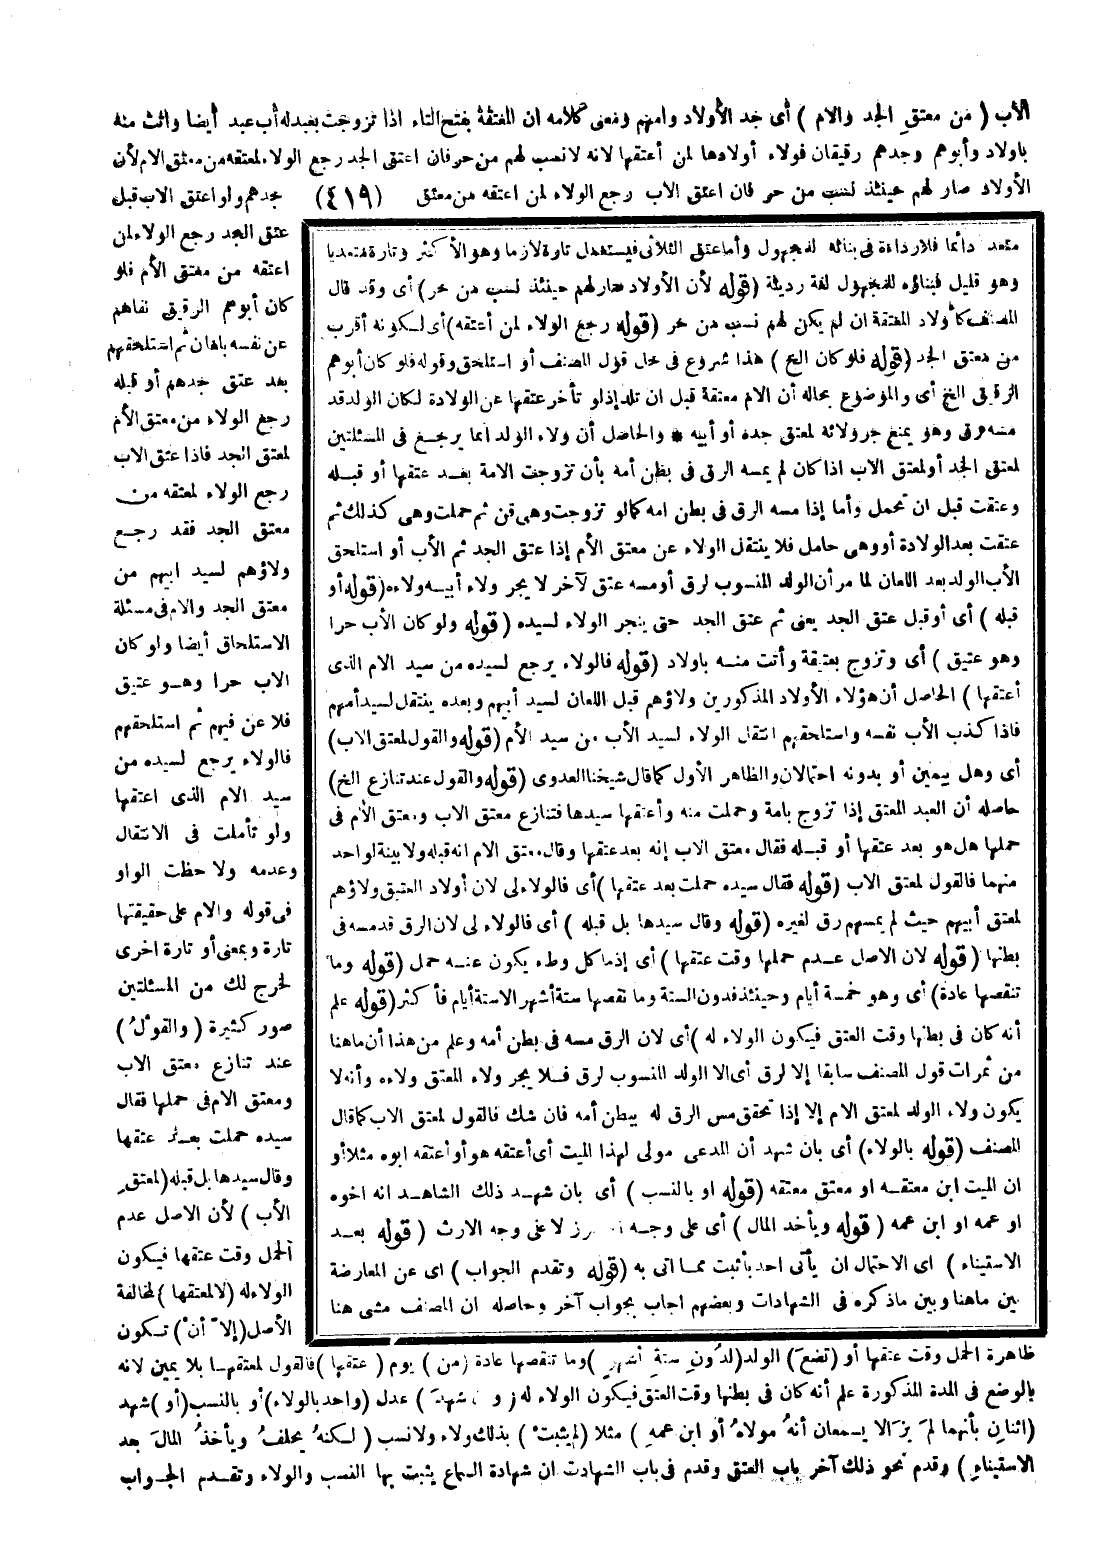 الأب ( من معتق الجد والام ) أى جد الأولاد وامهم ومعنى كلامه ان المعتقة بفتح التاء اذا تزوجت بعبد له أب عبد أيضا واتت منه
باولاد وأبوهم وجدهم رقيقان فولاء أولادها لمن أعتقها لانه لا نسب لهم من حر فان اعتق الجد رجع الولاء لمعتقه من معتق الام لأن
الأولاد صار لهم حينئذ نسب من حر فان اعتق الاب رجع الولاء لمن اعتقه من معتق (٤١٩) جدهم ولو اعتق الاب قبل
عتق الجد رجع الولاء لمن
اعتقه من معتق الأم فلو
كان أبوهم الرقيق نفاهم
عن نفسه بلعان ثم استلحقهم
بعد عتق جدهم أو قبله
رجع الولاء من معتق الأم
لمعتق الجد فاذا عتق الاب
رجع الولاء لمعتقه من
معتق الجد فقد رجع
ولاؤهم لسيد ابيهم من
معتق الجد والام فى مسئلة
الاستلحاق أيضا ولو كان
الاب حرا وهو عتيق
فلا عن فيهم ثم استلحقهم
فالولاء يرجع لسيده من
سيد الام الذى اعتقها
ولو تأملت فى الانتقال
وعدمه ولاحظت الواو
فى قوله والام على حقيقتها
تارة وبمعنى أو تارة اخرى
لخرج لك من المسئلتين
صور كثيرة ( والقولُ )
عند تنازع معتق الاب
ومعتق الام فى حملها فقال
سيده حملت بعد عتقها
وقال سيدها بل قبله (لمعتقِ
الأب ) لأن الاصل عدم
الحمل وقت عتقها فيكون
الولاء له (لا لمعتقها ) لمخالفة
الأصل (إلا أنْ ) تكون
متعد دائما فلا رداءة فى بنائه للمجهول وأما عتق الثلاثى فيستعمل تارة لازما وهو الأكثر وتارة متعديا
وهو قليل فبناؤه للمجهول لغة رديئة (قوله لأن الأولاد صار لهم حينئذ نسب من حر) أى وقد قال
المصنف كأولاد المعتقة ان لم يكن لهم نسب من حر (قوله رجع الولاء لمن أعتقه) أى لكونه أقرب
من معتق الجد (قوله فلو كان الخ ) هذا شروع فى حل قول المصنف أو استلحق وقوله فلو كان أبوهم
الرقيق الخ أى والموضوع بحاله أن الام معتقة قبل ان تلد إذ لو تأخر عتقها عن الولادة لكان الولد قد
مسه رق وهو يمنع جر ولائه لمعتق جده أو أبيه * والحاصل أن ولاء الولد انما يرجع فى المسئلتين
لمعتق الجد أو لمعتق الاب اذا كان لم يمسه الرق فى بطن أمه بأن تزوجت الامة بعد عتقها أو قبله
وعتقت قبل ان تحمل وأما إذا مسه الرق فى بطن امه كما لو تزوجت وهى قن ثم حملت وهى كذلك ثم
عتقت بعد الولادة أو وهى حامل فلا ينتقل الولاء عن معتق الأم إذا عتق الجد ثم الأب أو استلحق
الأب الولد بعد اللعان لما مر أن الولد المنسوب لرق أو مسه عتق لآخر لا يجر ولاء أبيه ولاءه (قوله أو
قبله ) أى أو قبل عتق الجد يعنى ثم عتق الجد حتى ينجر الولاء لسيده (قوله ولو كان الأب حرا
وهو عتيق ) أى وتزوج بعتيقة وأتت منه باولاد (قوله فالولاء يرجع لسيده من سيد الام الذى
أعتقها ) الحاصل أن هؤلاء الأولاد المذكورين ولاؤهم قبل اللعان لسيد أبيهم وبعده ينتقل لسيد أمهم
فاذا كذب الأب نفسه واستلحقهم انتقل الولاء لسيد الأب من سيد الأم (قوله والقول لمعتق الاب)
أى وهل بيمين أو بدونه احتمالان والظاهر الأول كما قال شيخنا العدوى (قوله والقول عند تنازع الخ)
حاصله أن العبد المعتق إذا تزوج بامة وحملت منه وأعتقها سيدها فتنازع معتق الاب ومعتق الأم فى
حملها هل هو بعد عتقها أو قبله فقال معتق الاب إنه بعد عتقها وقال معتق الام انه قبله ولا بينة لواحد
منهما فالقول لمعتق الاب (قوله فقال سيده حملت بعد عتقها ) أى فالولاء لى لان أولاد العتيق ولاؤهم
لمعتق أبيهم حيث لم يمسهم رق لغيره (قوله وقال سيدها بل قبله ) أى فالولاء لى لان الرق قد مسه فى
بطنها ( قوله لان الاصل عدم حملها وقت عتقها ) أى إذ ما كل وطء يكون عنه حمل (قوله وما
تنقصها عادة) أى وهو خمسة أيام وحينئذ فدون الستة وما نقصها ستة أشهر الا ستة أيام فأكثر (قوله علم
أنه كان فى بطنها وقت العتق فيكون الولاء له ) أى لان الرق مسه فى بطن أمه وعلم من هذا أن ما هنا
من ثمرات قول المصنف سابقا إلا لرق أى الا الولد المنسوب لرق فلا يجر ولاء المعتق ولاءه وأنه لا
يكون ولاء الولد لمعتق الام إلا إذا تحقق مس الرق له ببطن أمه فان شك فالقول لمعتق الاب كما قال
المصنف (قوله بالولاء) أى بان شهد أن المدعى مولى لهذا الميت أى أعتقه هو أو أعتقه ابوه مثلا أو
ان الميت ابن معتقه او معتق معتقه (قوله او بالنسب ) أى بان شهد ذلك الشاهد انه اخوه
او عمه او ابن عمه ( قوله ويأخد المال ) أى على وجه لا على وجه الارث ( قوله بعد
الاستيناء ) اى الاحتمال ان يأتى احد بأثبت مما اتى به (قوله وتقدم الجواب ) اى عن المعارضة
بين ما هنا وبين ما ذكره فى الشهادات وبعضهم اجاب بجواب آخر وحاصله ان المصنف مشى هنا
ظاهرة الحمل وقت عتقها أو (تضعَ) الولد (لدُونِ ستةِ أشهرٍ ) وما تنقصها عادة (من ) يوم ( عتقها ) فالقول لمعتقها بلا يمين لانه
بالوضع فى المدة المذكورة علم أنه كان فى بطنها وقت العتق فيكون الولاء له ( و شهدَ ) عدل (واحد بالولاء) أو بالنسب (أو ) شهد
(اثنانِ بأنهما لمْ يزَالا يسمعان أنهُ مولاهُ أو ابن عمهِ ) مثلا (لم يثبتْ ) بذلك ولاء ولا نسب ( لكنهُ يحلفُ ويأخذُ المالَ بعد
الاستيناءِ ) وقدم نحو ذلك آخر باب العتق وقدم فى باب الشهادت ان شهادة السماع يثبت بها النسب والولاء وتقدم الجواب